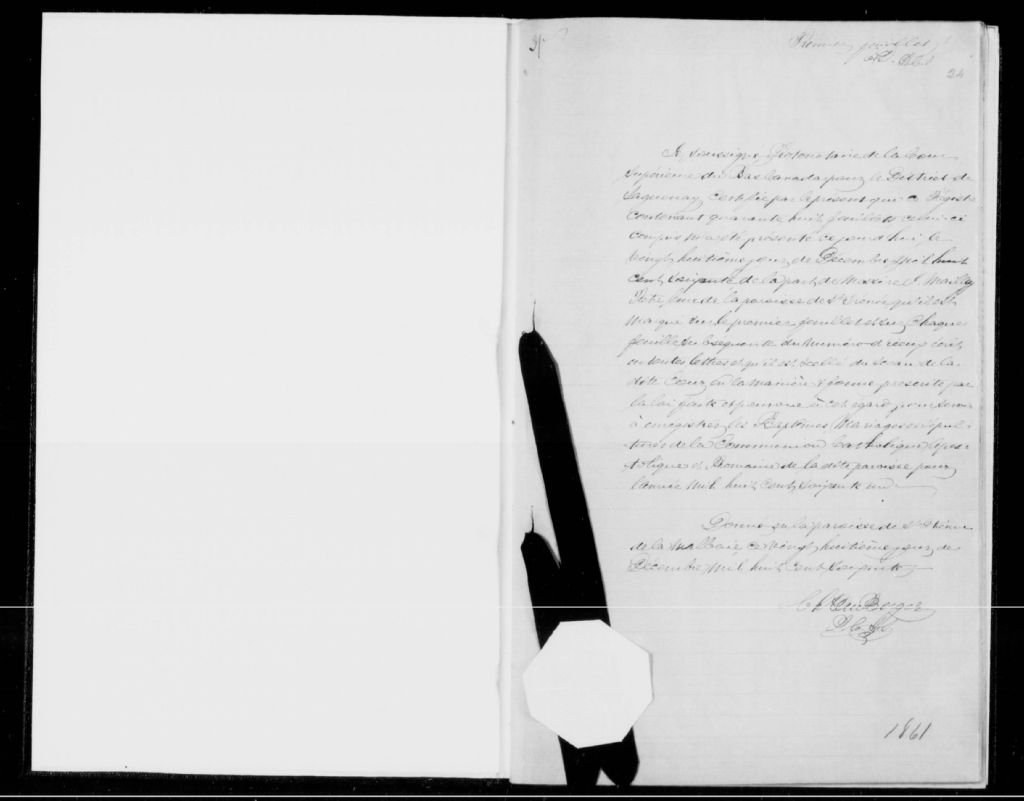 Premier feuillet
24
Je, soussigné, Protonotaire de la Cour
Supérieure du Bas Canada pour le District de
Saguenay, certifie par le présent que ce Régistre
Contenant quarante huit feuillets celui-ci
compris m'a été présenté ce jourd'hui le
vingt huitième jour de Décembre Mil huit
cent soixante de la part de Messire J. Mailly
Ptre, Curé de la paroisse de St Irénée qu'il est
Marqué sur le premier feuillet et sur chaque
feuillet subséquente du numéro d'iceux écrit
en toutes lettres et qu'il est scellé du sceau de la
dite Cour, en la manière & forme prescrite par
la loi faite et pourvue à cet égard pour servir
à enregistrer les Baptêmes Mariages et Sépul-
tures de la Communion Catholique Apos-
tolique et Romaine de la dite paroisse pour
l'année Mil huit cent soixante un
Donné en la paroisse de St Etienne
de la Malbaie, ce vingt huitième jour de
Décembre, Mil huit cent soixante
P.C.S.
1861